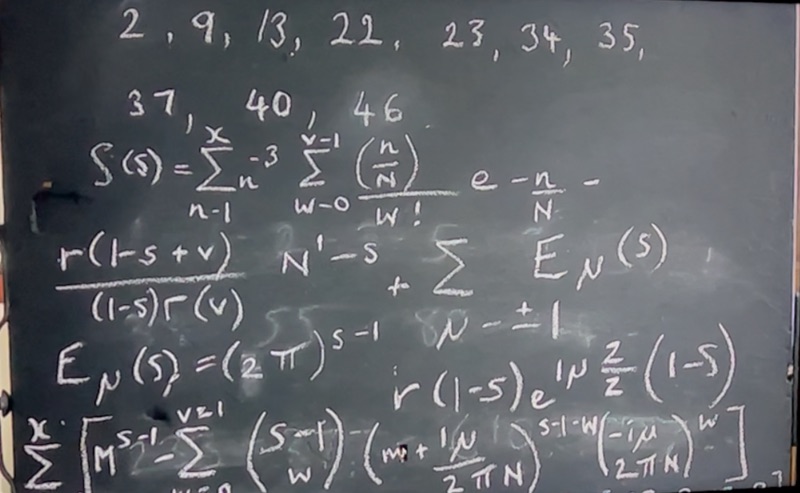 2, 9, 13, 22, 23, 34, 35,
37, 40, 46
S(s) = x∑n-1 n-3 v-1∑w-0 (n/N) / w! e - n/N -
r(1-s+v) / (1-s)r(v) N1-s + ∑ Eμ(s)
μ - ±1
Eμ(s) = (2π)s-1 ir(1-s)eiμ 2/2 (1-s)
x∑ [Ms-1 - v=1∑ (s-1 w) (m + iμ/2πN)s-1-w (-iμ/2πN)w]